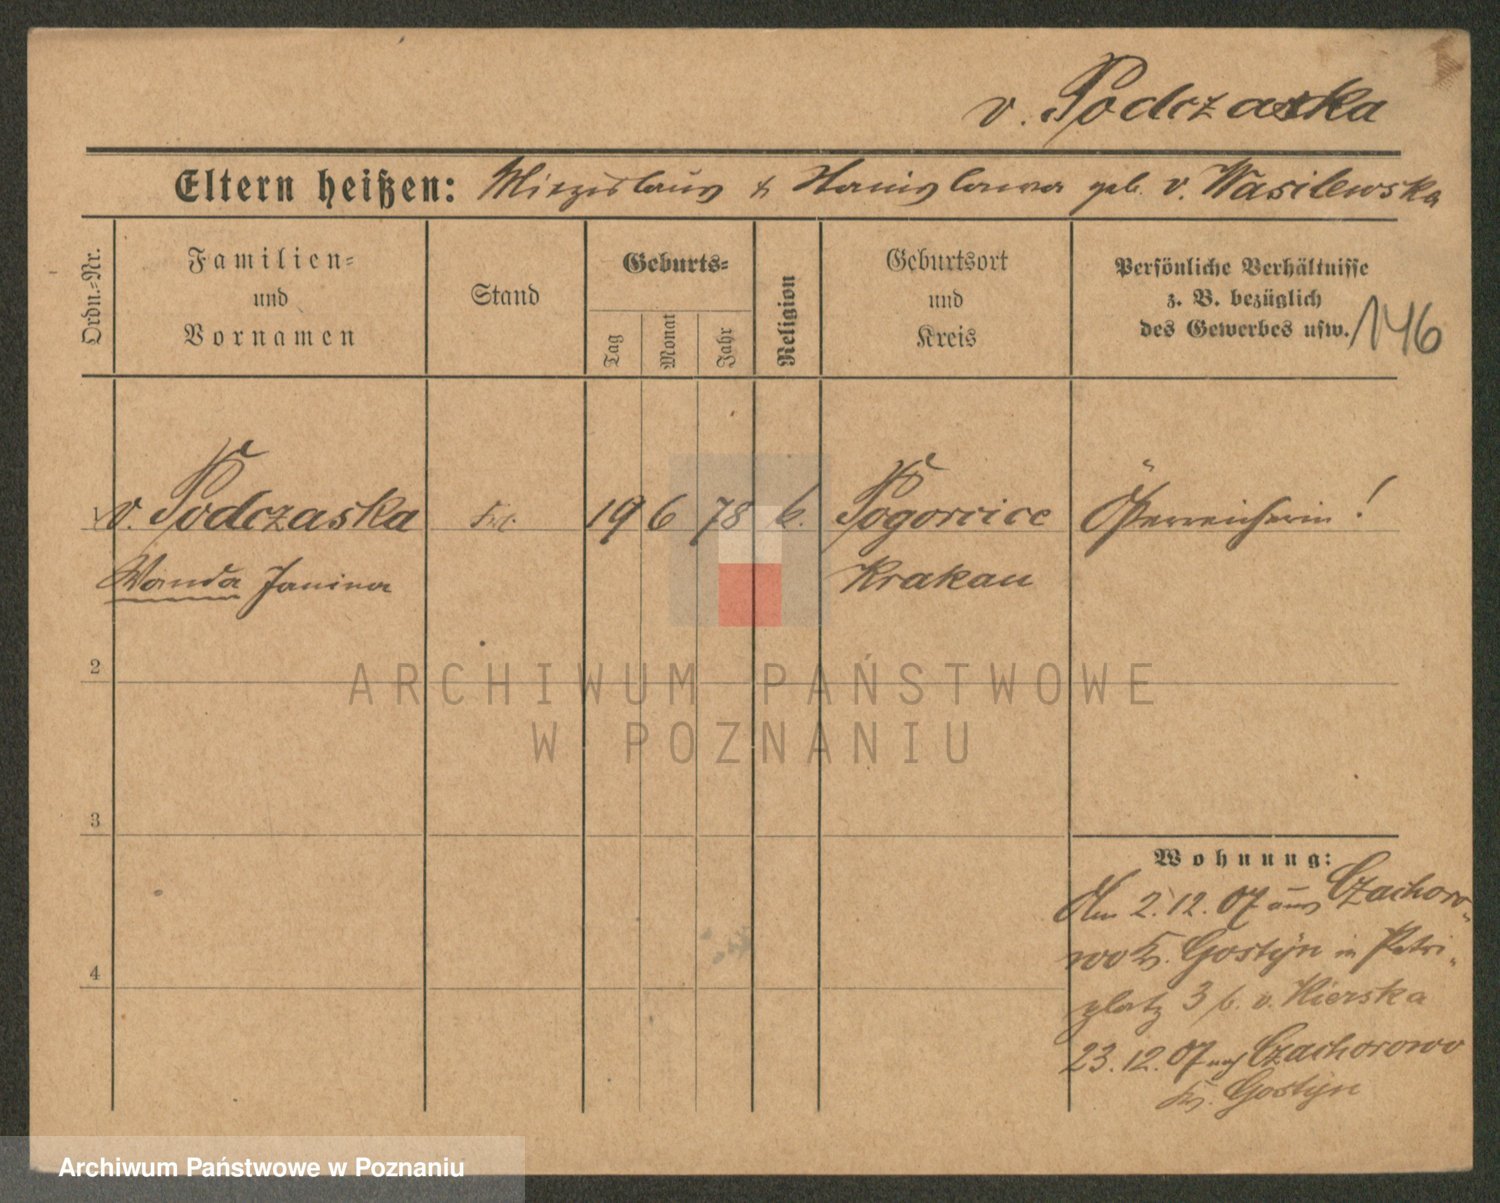 v. Podczaska
Eltern heißen: Miezislaus & Stanislawa geb. v. Wasilewska
Ordn.-Nr.
Familien-
und
Vornamen
Stand
Geburts-
Tag
Monat
Jahr
Religion
Geburtsort
und
Kreis
Persönliche Verhältnisse
z. B. bezüglich
des Gewerbes usw.
146
1 v. Podczaska Frl. 19 6 78 k. Pogorcice Österreicherin!
Wanda Janina Krakau
2
3
4
Wohnung:
Am 2.12.07 aus Czachoro-
wo Kr. Gostÿn in Petri-
platz 3 b. v. Kierska
23.12.07 nach Czachorowo
Kr. Gostÿn
ARCHIWUM PAŃSTWOWE
W POZNANIU
Archiwum Państwowe w Poznaniu